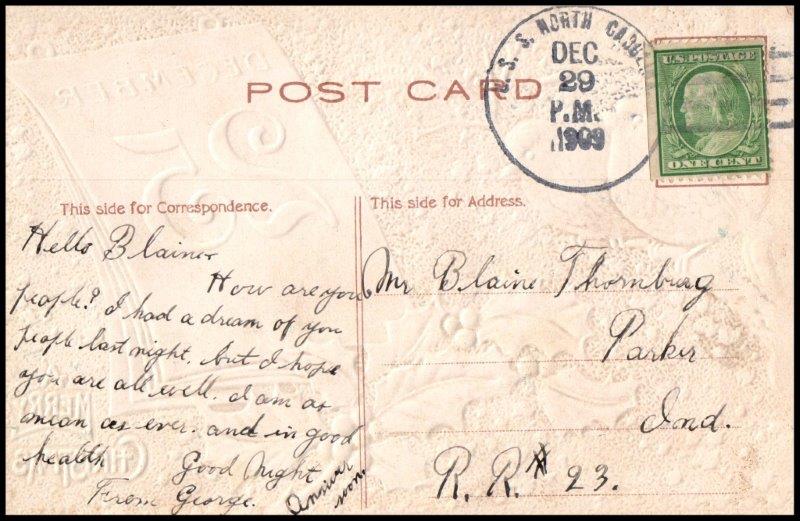 U.S.S. NORTH CAROL
DEC
29
P.M.
1909
U.S. POSTAGE
ONE CENT
POST CARD
DECEMBER
25
MERRY
CHRISTMAS
This side for Correspondence.
Hello Blaine
How are you
people? I had a dream of you
people last night, but I hope
you are all well. I am as
mean as ever. and in good
health Good Night
From George.
Answer
soon.
This side for Address.
Mr Blaine Thornburg
Parker
Ind.
R. R. # 23.